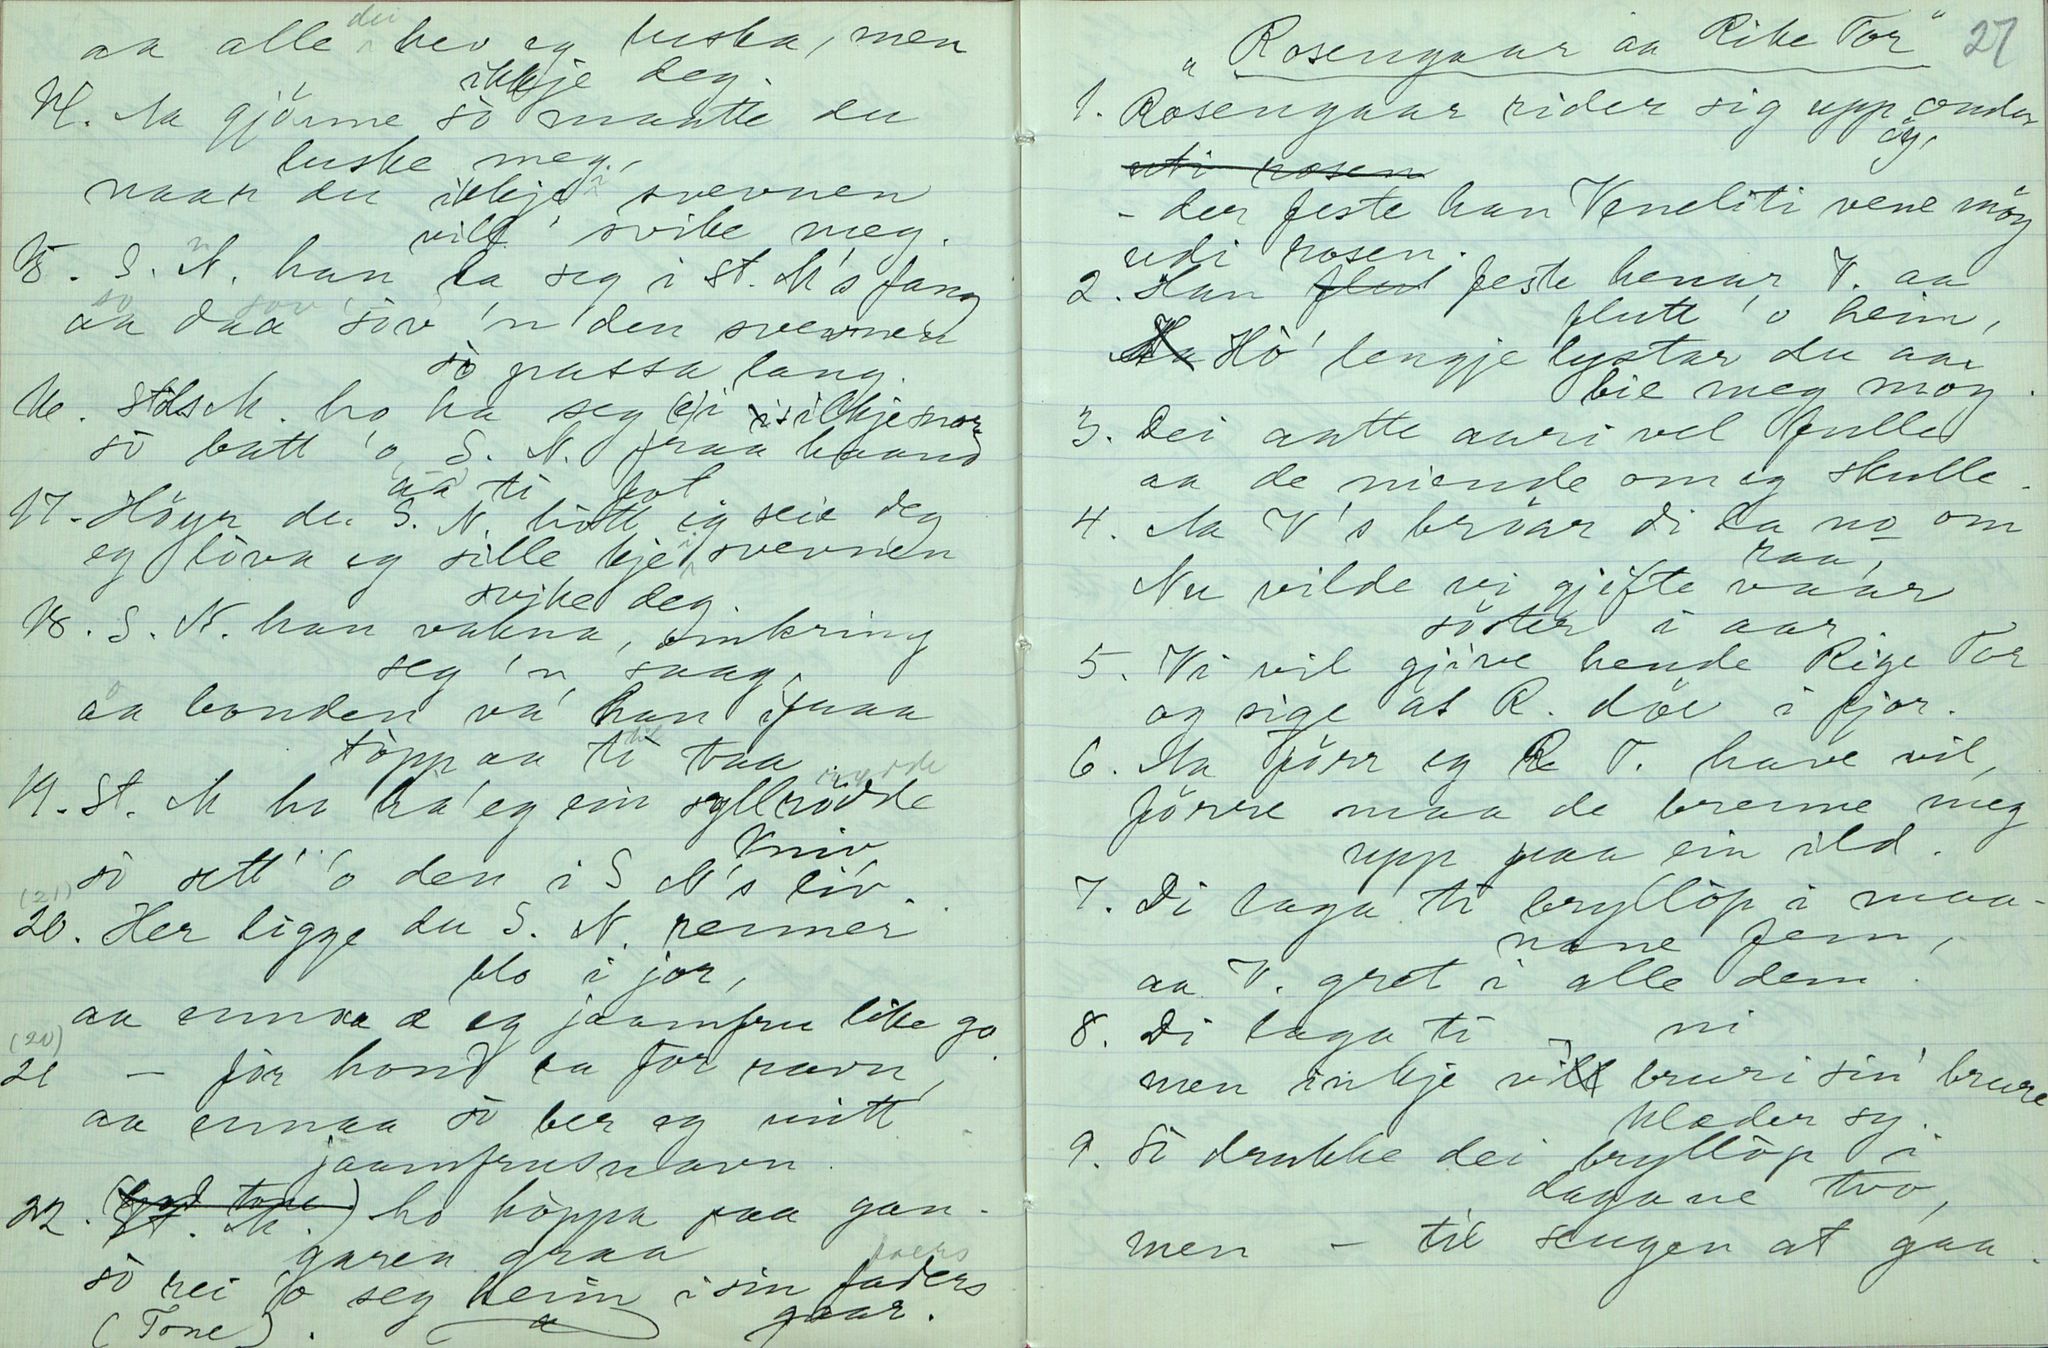 aa alle dei hev eg luska, men
ikkje deg.
14. Aa gjönne so maatte du
luske meg,
naar du ikkje i svevnen
vill' svike meg.
15. S. N. han la seg i St. M's fang
aa daa sov 'n den svevnen
so passa lang.
16. M. ho ha seg i silkjesnor
so batt 'o S. N. fraa haand
aa ti fot
17. Höyr du S. N. hött eg seie deg
eg lova eg sille kje i svevnen
svike deg.
18. S. N. han vakna, omkring
seg 'n saag,
aa bonden va' han ifraa
topp aa ti taa.
19. St. M ho ha' eg ein syllrodde
kniv
so sett' 'o den i S N's liv.
(21)
20. Her ligge du S. N. renner
blo i jor,
aa ennaa æ eg jaamfru like go
(20)
21 – för hond ea for ravn,
aa ennaa so ber eg mitt
jaamfrusnavn.
22. (St. M.) ho hoppa paa gan-
garen graa
so rei 'o seg heim i sin faders
gaar.
(Tone).
"Rosengaar aa Rike Tor" 27
1. Rosengaar rider sig upp onder
öy,
uti rosen
– der feste han Veneliti vene möy
udi rosen.
2. Han feste henar V. aa
flutt 'o heim,
Ho' lengje lystar du aa
bie meg moy.
3. Dei aatte aari vel fulle
aa de niende om eg skulle.
4. Aa V's bröar di la no om
raa,
Nu vilde vi gjifte vaar
söster i aar
5. Vi vil gjive hende Rige Tor
og sige at R. döe i fjor.
6. Aa förr eg R T. have vil,
förre maa de brenne meg
upp paa ein ild.
7. Di laga ti bryllöp i maa-
nane fem,
aa V. gret i alle dem.
8. Di laga ti – ni
men inkje vil bruri sin' brure
klæder sy.
9. So drukke dei bryllöp i
dagane tvo,
men – til sengen at gaa.